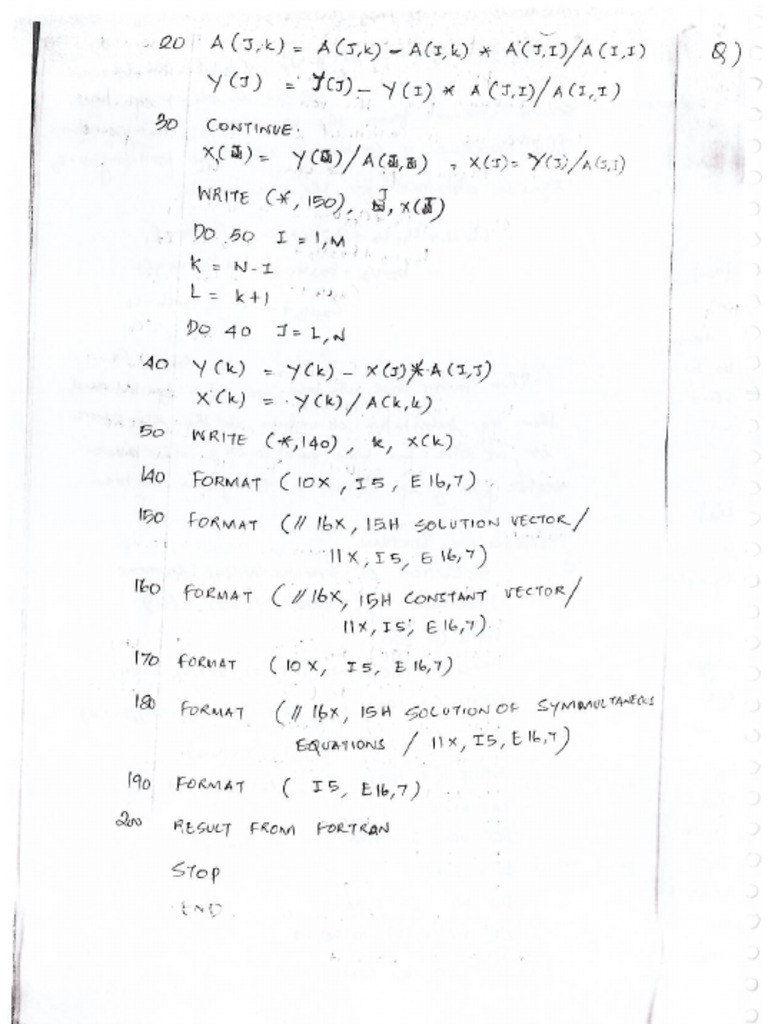 20 A(J,k) = A(J,k) - A(I,k) * A(J,I)/A(I,I)
Q)
Y(J) = Y(J) - Y(I) * A(J,I)/A(I,I)
30 CONTINUE
X( ) = Y( )/A( , ) , X(J) = Y(J)/A(J,J)
WRITE (*, 150), J, X(J)
DO 50 I = 1,M
K = N-I
L = k+1
DO 40 J = L,N
40 Y(k) = Y(k) - X(J)*A(I,J)
X(k) = Y(k)/A(k,k)
50 WRITE (*,140), k, X(k)
140 FORMAT (10X, I5, E16,7)
150 FORMAT (// 16X, 15H SOLUTION VECTOR/
11X, I5, E16,7)
160 FORMAT (// 16X, 15H CONSTANT VECTOR/
11X, I5, E16,7)
170 FORMAT (10X, I5, E16,7)
180 FORMAT (// 16X, 15H SOLUTION OF SYMMULTANEOUS
EQUATIONS / 11X, I5, E16,7)
190 FORMAT ( I5, E16,7)
200 RESULT FROM FORTRAN
STOP
END